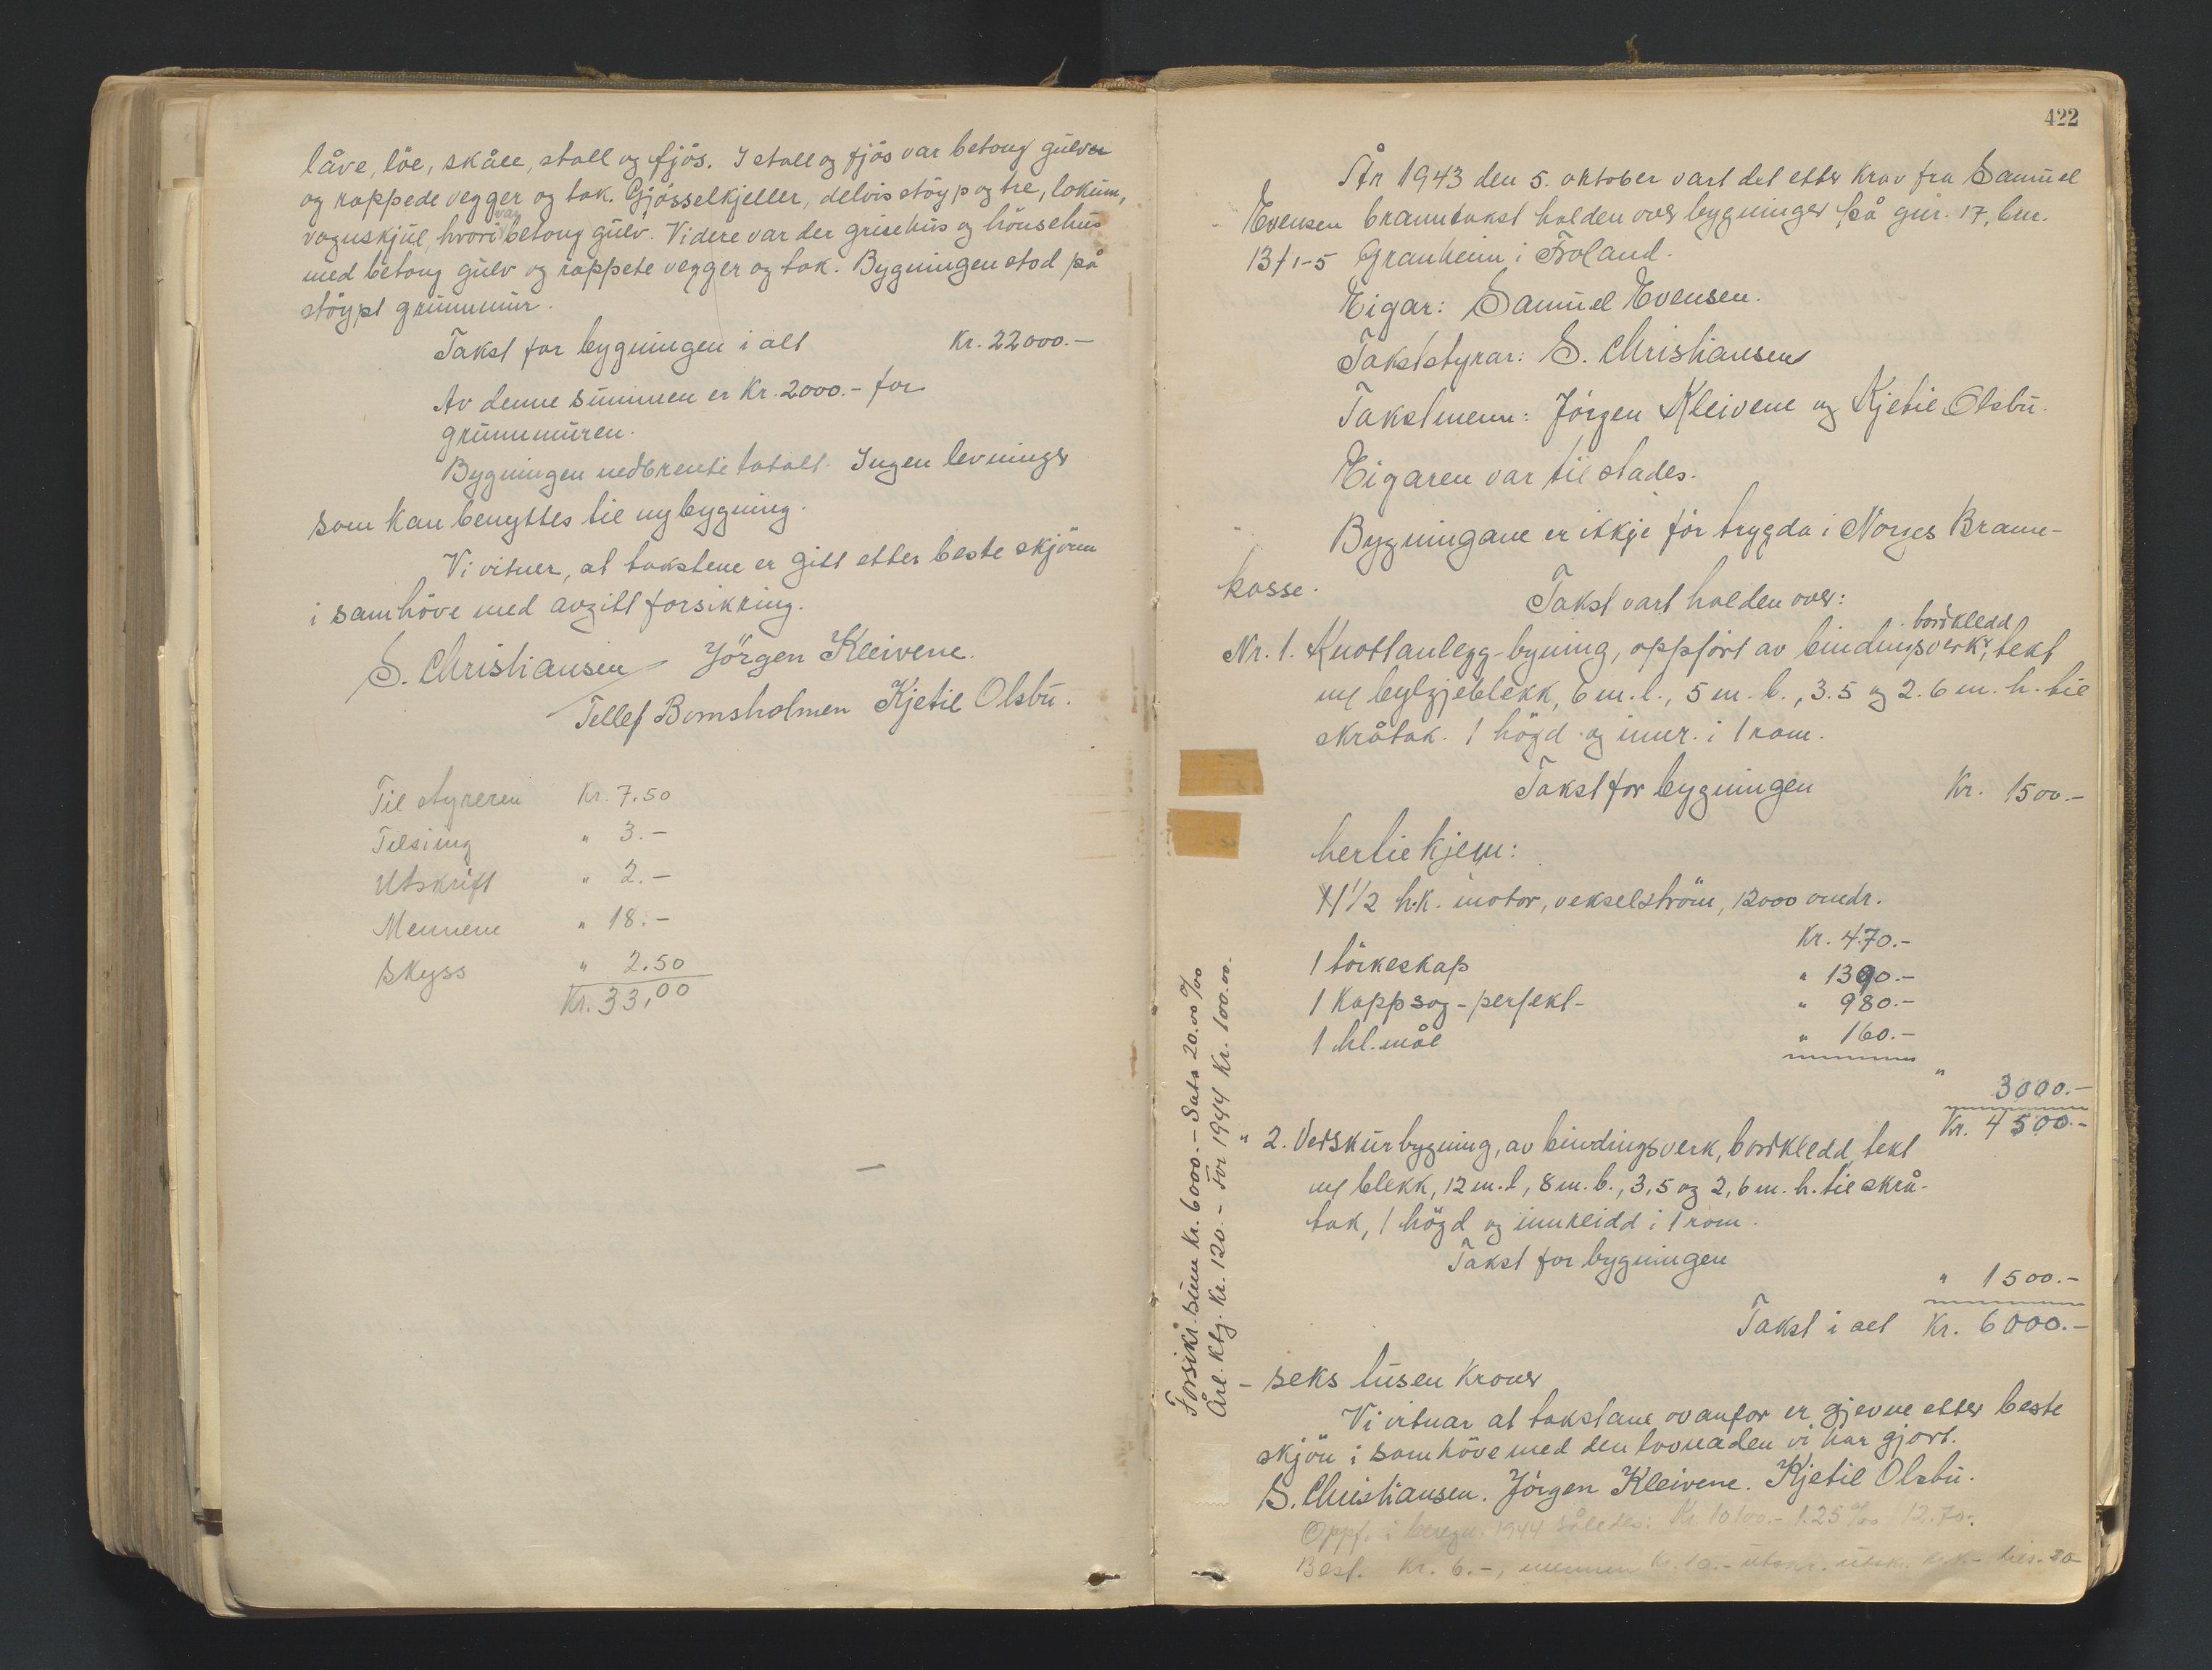 låve, löe, skåle, stall og fjös. I stall og fjös var betong gulver
og rappede vegger og tak. Gjösselkjeller, delvis stöyp og tre, lokum,
vognskjul, hvori var betong gulv. Videre var der grisehus og hönsehus
med betong gulv og rappete vegger og tak. Bygningen stod på
stöypt grunnmur.
Takst for bygningen i alt Kr. 22000.-
Av denne summen er Kr. 2000.- for
grunnmuren.
Bygningen nedbrente totalt. Ingen levninger
som kan benyttes til ny bygning.
Vi vitner, at takstene er gitt etter beste skjönn
i samhöve med avgitt forsikring.
S. Christiansen Jörgen Kleivene.
Tellef Bomsholmen Kjetil Olsbu.
Til styreren Kr. 7.50
Tilsing " 3.-
Utskrift " 2.-
Mennene " 18.-
Skyss " 2.50
Kr. 33,00
422
År 1943 den 5. oktober vart det etter krav fra Samuel
Evensen branntakst halden over bygninger på gnr. 17, bnr.
13f1-5 Granheim i Froland.
Eigar: Samuel Evensen.
Takststyrar: S. Christiansen
Takstmenn: Jörgen Kleivene og Kjetil Olsbu.
Eigaren var til stades.
Bygningane er ikkje för trygda i Norges Brann-
kasse.
Takst vart halden over:
bordkledd
Nr. 1. Knottanlegg-bygning, oppfört av bindingsverk, tekt
m/ bylgjeblekk, 6 m. l., 5 m. b., 3.5 og 2.6 m. h. til
skråtak. 1 högd og innr. i 1 rom.
Takst for bygningen Kr. 1500.-
hertil kjem:
1 1/2 h.k. motor, vekselström, 12000 omdr.
Kr. 470.-
1 törkeskap " 1390.-
1 Kappsag - perfekt - " 980.-
1 hl. mål " 160.-
" 3000.-
Kr. 4500.-
" 2. Vedskurbygning, av bindingsverk, bordkledd, tekt
m/ blekk, 12 m. l, 8 m. b., 3,5 og 2,6 m. h. til skrå-
tak, 1 högd og innreidd i 1 rom.
Takst for bygningen
" 1500.-
Takst i alt Kr. 6000.-
- seks tusen kroner
Vi vitnar at takstane ovanfor er gjevne etter beste
skjön i samhöve med den lovnaden vi har gjort.
S. Christiansen. Jörgen Kleivene. Kjetil Olsbu.
Oppf. i beregn. 1944 således: Kr. 10100.- 1.25 ‰ 12.70.
Best. Kr. 6.-, mennene Kr. 10.-
Forsikr.sum kr. 6000.- Sats 20.00 ‰
Årl. ktg. kr. 120.- For 1944 Kr. 100.00.